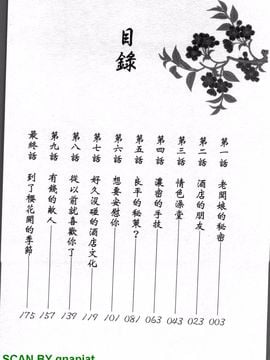 目錄
第一話 老闆娘的秘密 003
第二話 酒店的朋友 023
第三話 情色澡堂 043
第四話 濃密的手技 063
第五話 良平的秘策？ 081
第六話 想要安慰你 101
第七話 好久沒碰的酒店文化 119
第八話 從以前就喜歡你了 139
第九話 有錢的敵人 157
最終話 到了櫻花開的季節 175
SCAN BY gnapiat